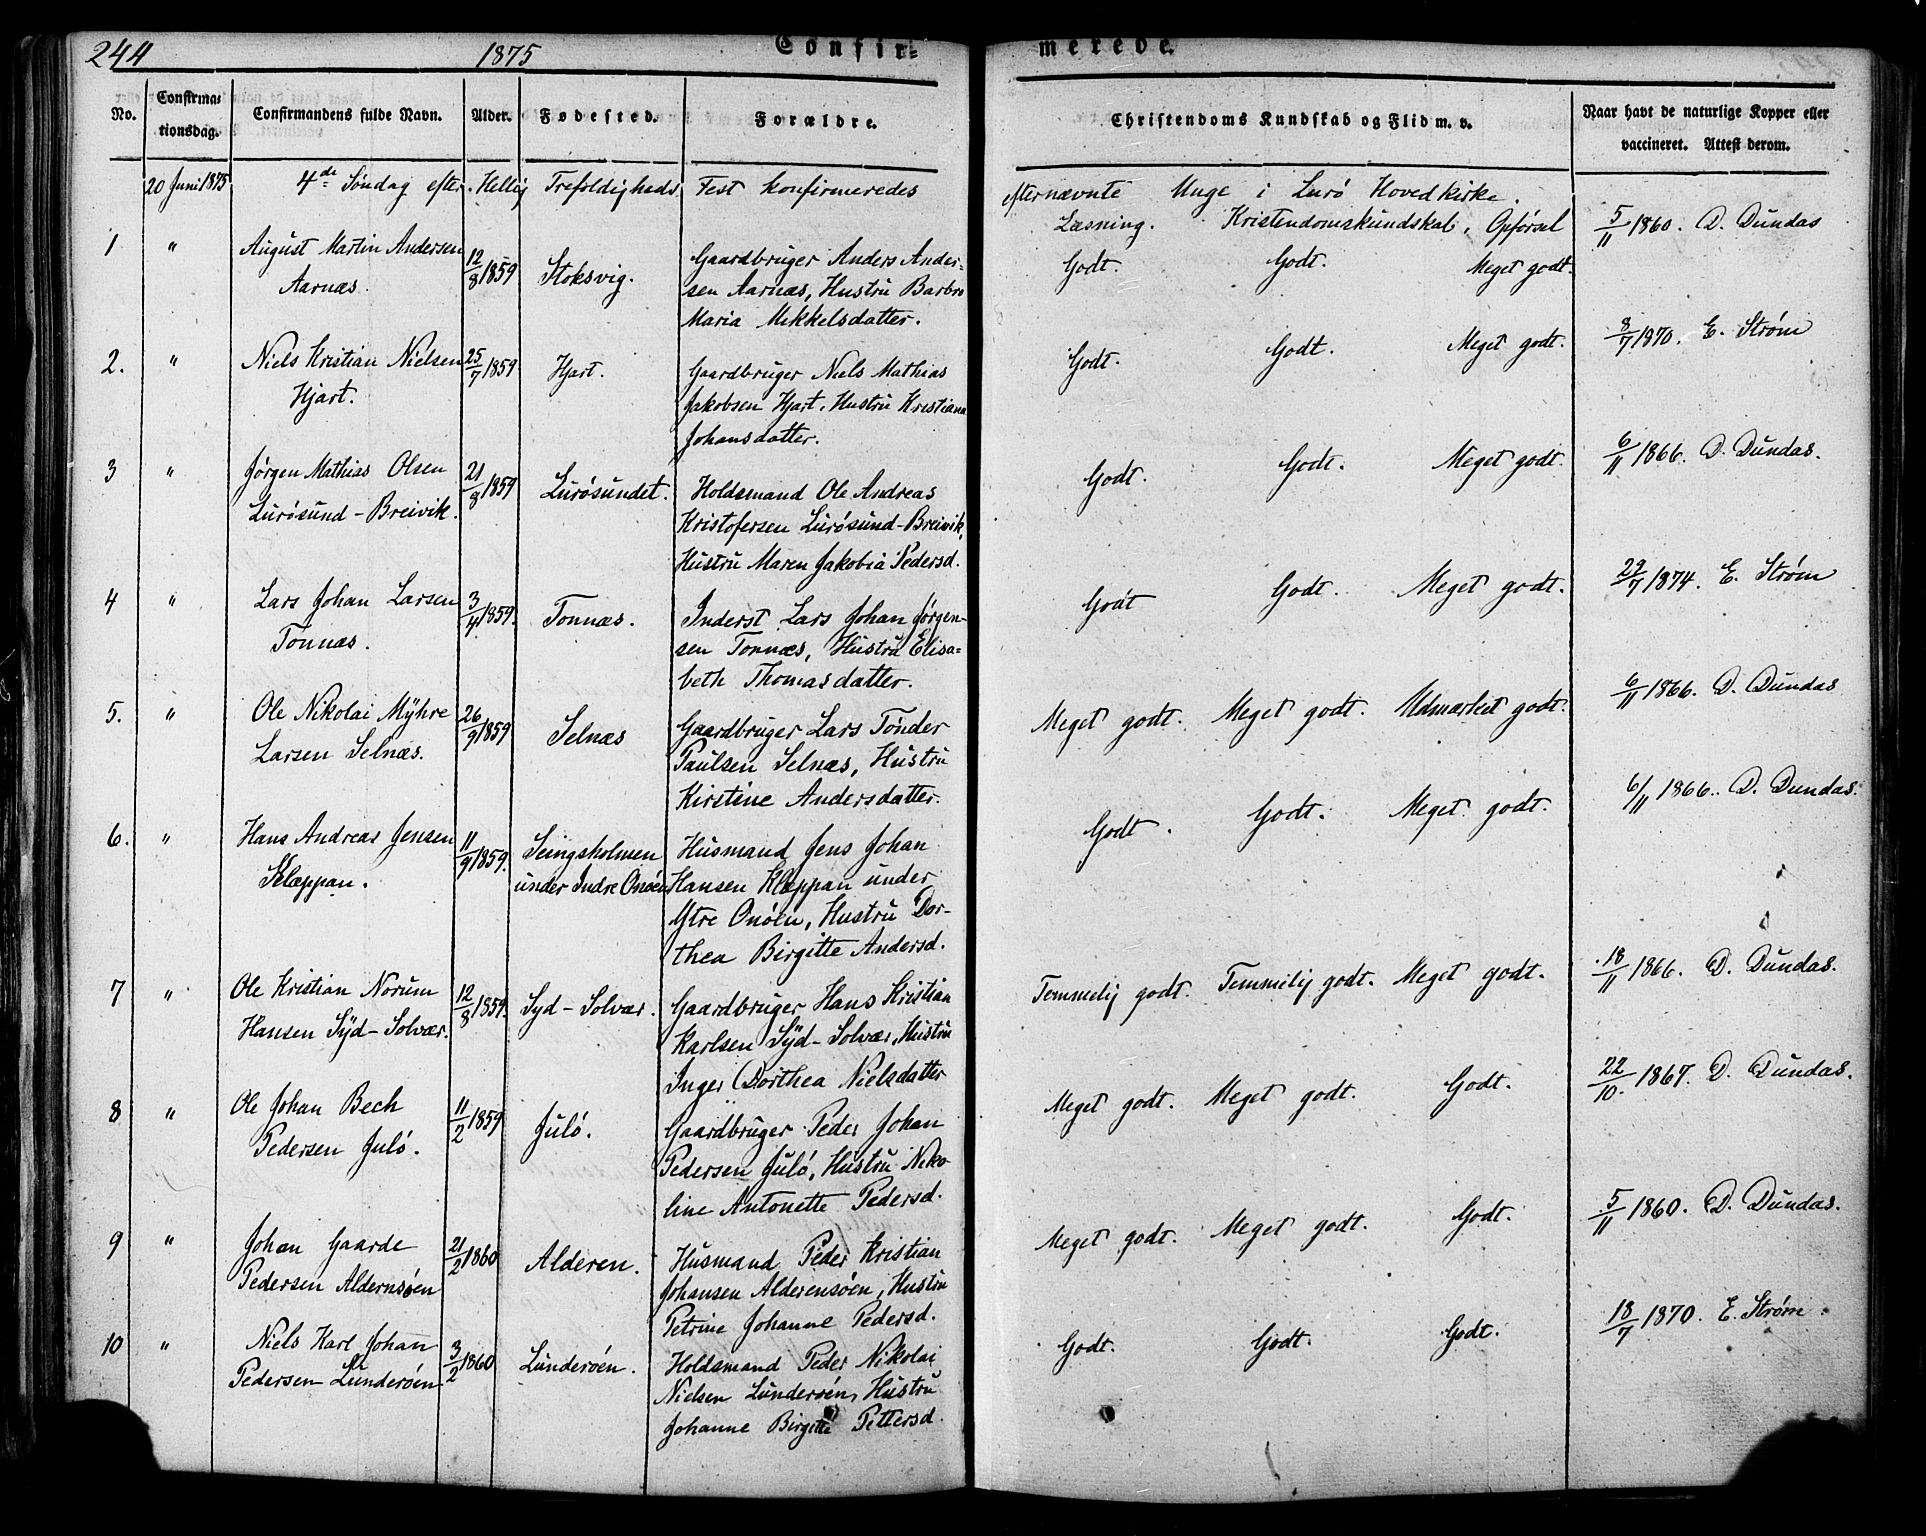 244 1875 Confir= merede.
No. Confirma= tionsdag. Confirmandens fulde Navn. Alder. Fødested. Forældre. Christendoms Kundskab og Flid m. v. Naar havt de naturlige Kopper eller vaccineret. Attest derom.
20 Juni 1875 4de Søndag efter Hellig Trefoldigheds Fest konfirmeredes efternævnte Unge i Lurø Hovedkirke.
Læsning. Kristendomskundskab, Opførsel
1 " August Martin Andersen 12/8 1859 Stoksvig. Gaardbruger Anders Ander- Godt. Godt. Meget godt. 5/11 1860. D. Dundas
Aarnæs. sen Aarnæs, Hustru Barbro
Maria Mikkelsdatter.
2. " Niels Kristian Nielsen 25/7 1859 Hjart. Gaardbruger Niels Mathias Godt. Godt. Meget godt. 8/7 1870. E. Strøm
Hjart. Jakobsen Hjart, Hustru Kristiana
Johansdatter.
3 " Jørgen Mathias Olsen 21/8 1859 Lurøsundet. Holdsmand Ole Andreas Godt. Godt. Meget godt. 6/11 1866. D. Dundas.
Lurøsund-Breivik. Kristofersen Lurøsund-Breivik,
Hustru Maren Jakobia Pedersd.
4 " Lars Johan Larsen 3/4 1859. Tonnæs. Inderst Lars Johan Jørgen- Godt Godt. Meget godt. 29/7 1874. E. Strøm
Tonnæs. sen Tonnæs, Hustru Elisa=
beth Thomasdatter.
5. " Ole Nikolai Myhre 26/9 1859 Selnæs Gaardbruger Lars Tønder Meget godt. Meget godt. Udmærket godt. 6/11 1866. D. Dundas
Larsen Selnæs. Paulsen Selnæs, Hustru
Kirstine Andersdatter.
6. " Hans Andreas Jensen 11/9 1859. Seingsholmen Husmand Jens Johan Godt. Godt. Meget godt. 6/11 1866. D. Dundas.
Klæppan. under Indre Onøen Hansen Klæppan under
Ytre Onøen, Hustru Dor-
thea Birgitte Andersd.
7 " Ole Kristian Norum 12/8 1859. Syd-Solvær. Gaardbruger Hans Kristian Temmelig godt. Temmelig godt. Meget godt. 18/11 1866. D. Dundas.
Hansen Syd-Solvær. Karlsen Syd-Solvær, Hustru
Inger Dorthea Nielsdatter
8 " Ole Johan Bech 11/2 1859 Julø. Gaardbruger Peder Johan Meget godt. Meget godt. Godt. 22/10. 1867. D. Dundas.
Pedersen Julø. Pedersen Julø, Hustru Niko-
line Antonette Pedersd.
9 " Johan Gaarde 21/2 1860 Alderen. Husmand Peder Kristian Meget godt. Meget godt. Godt. 5/11 1860. D. Dundas.
Pedersen Aldernsøen Johansen Alderensøen, Hustru
Petrine Johanne Pedersd.
10 " Niels Karl Johan 3/2 1860 Lunderøen. Holdsmand Peder Nikolai Godt. Godt. Godt. 18/7 1870. E. Strøm.
Pedersen Lunderøen Nielsen Lunderøen, Hustru
Johanne Birgitte Pettersd.